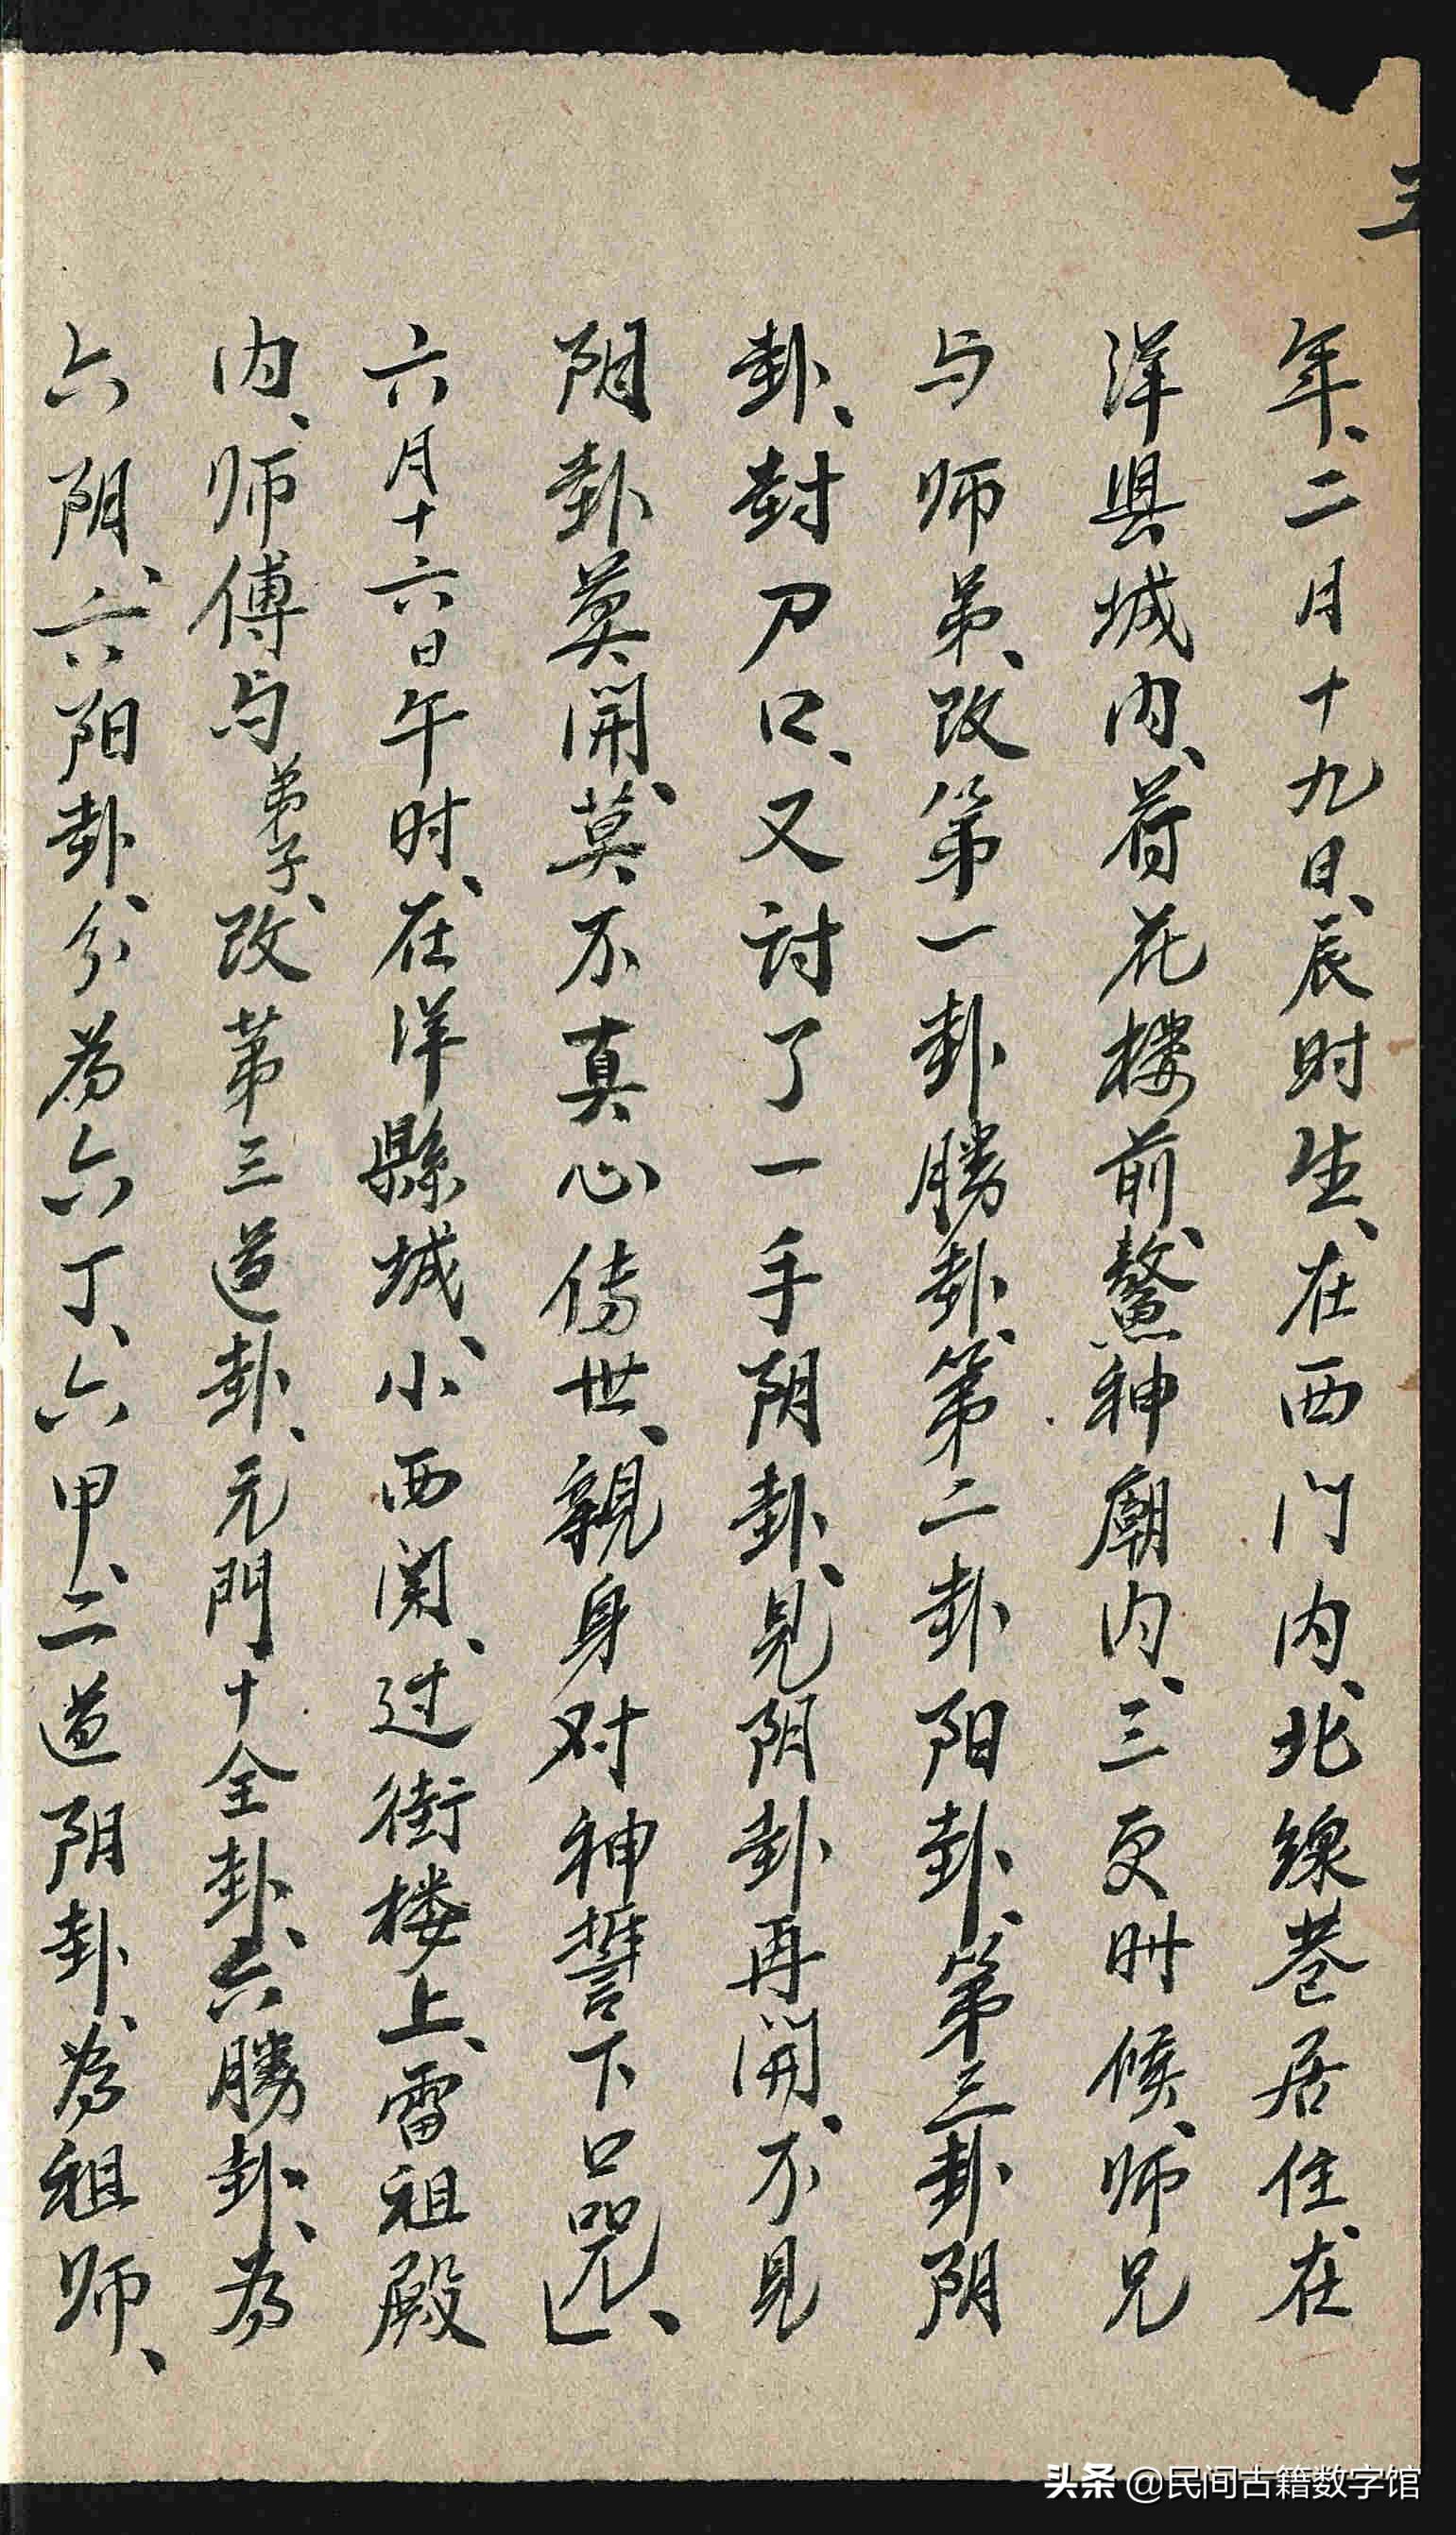 三
年、二月十九日、辰时生、在西门内、北線巷居住、在
洋县城内、荷花楼前、鰲神廟内、三更时候、师兄
与师弟、改第一卦勝卦、第二卦阳卦、第三卦阴
卦、封刀口、又讨了一手阴卦、見阴卦再開、不見
阴卦莫開、莫不真心傳世、親身对神誓下口咒、
六月十六日午时、在洋縣城、小西関、过街楼上、雷祖殿
内、师傅与弟子、改苐三道卦、元門十全卦、六勝卦、為
六阴、六阳卦、分為六丁、六甲、二道阴卦、為祖师、
头条 @民间古籍数字馆